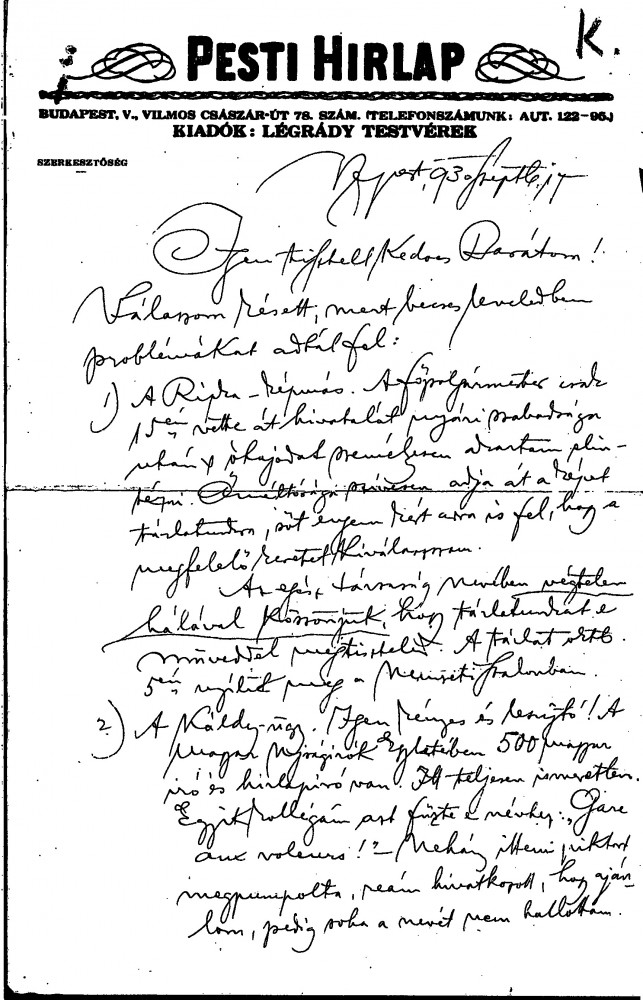 K.
PESTI HIRLAP
BUDAPEST, V., VILMOS CSÁSZÁR-ÚT 78. SZÁM. (TELEFONSZÁMUNK: AUT. 122-96.)
KIADÓK: LÉGRÁDY TESTVÉREK
SZERKESZTŐSÉG
Bpest, 930 szept. 17
Igen tisztelt Kedves Barátom!
Válaszom késett, mert becses leveledben
problémákat adtál fel:
1) A Ripka-képmás. A főpolgármester csak
15én vette át hivatalát nyári szabadsága
után s óhajodat személyesen akartam elin-
tézni. Őméltósága szívesen adja át a képet
tárlatunkra, sőt engem kért arra is fel, hogy a
megfelelő keretet kiválasszam.
Az egész társaság nevében végtelen
hálával köszönjük, hogy tárlatunkat e
műveddel megtiszteled. A tárlat okt.
5én nyílik meg a Nemzeti Szalonban.
2) A Káldy-ügy. Igen kényes és lesujtó! A
Magyar Ujságírók Egyletében 500 magyar
író és hirlapíró van. Itt teljesen ismeretlen.
Egyik kollégám azt fűzte e névhez: „Gare
aux voleurs!" - Néhány itteni piktort
megpumpolta, reám hivatkozott, hogy aján-
lom, pedig soha a nevét nem hallottam.